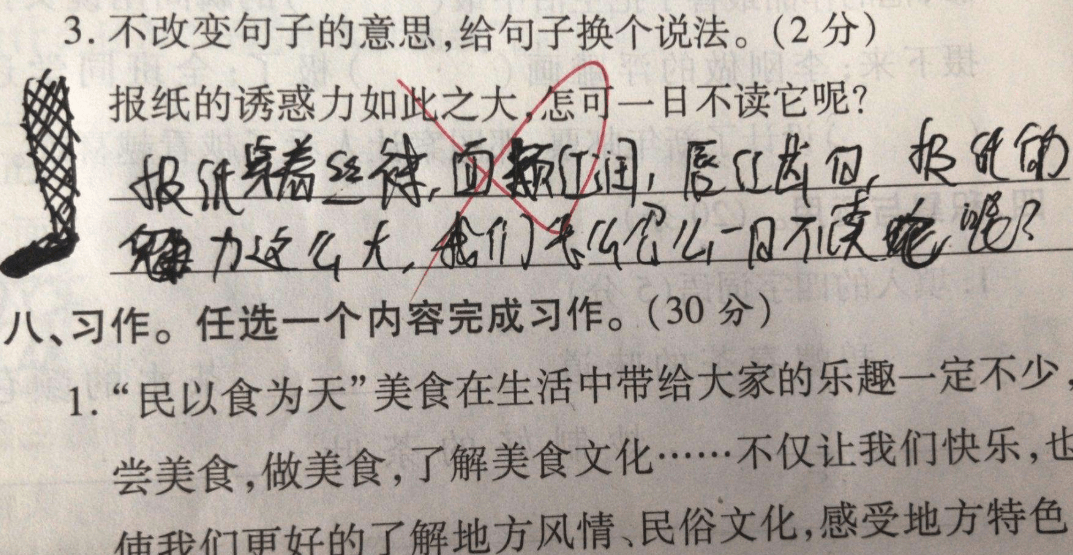 3. 不改变句子的意思,给句子换个说法。(2分)
报纸的诱惑力如此之大,怎可一日不读它呢?
报纸穿着丝袜,面颊红润,唇红齿白,报纸的
魅力这么大,我们怎么会么一日不读它呢?
八、习作。任选一个内容完成习作。(30分)
1. “民以食为天”美食在生活中带给大家的乐趣一定不少,
尝美食,做美食,了解美食文化……不仅让我们快乐,也
使我们更好的了解地方风情、民俗文化,感受地方特色